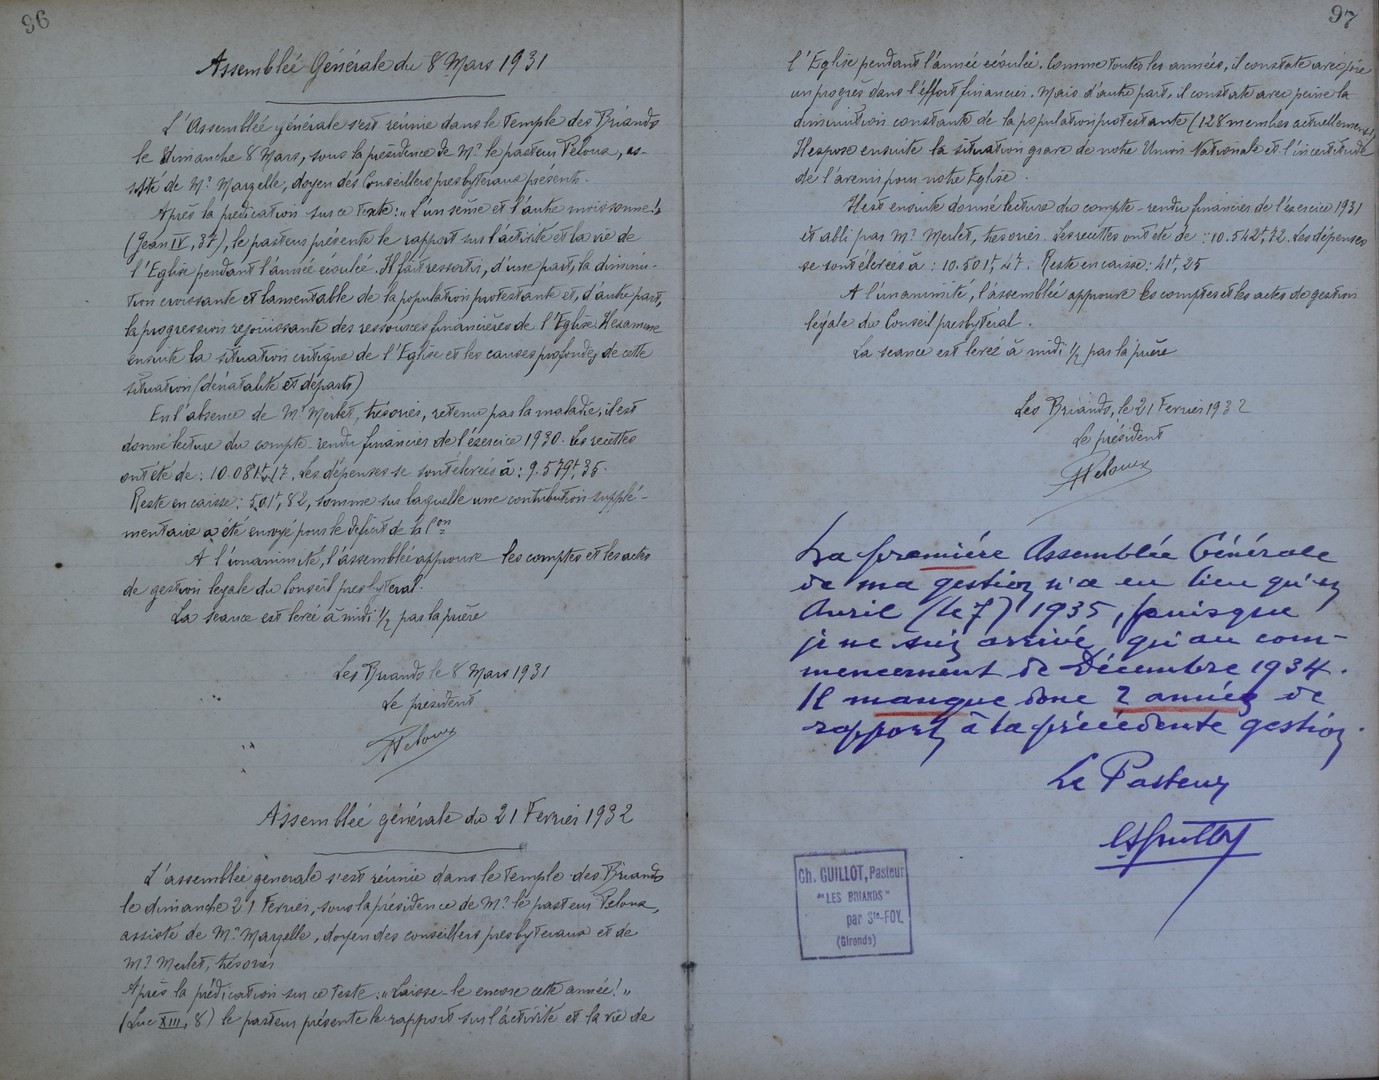 96
Assemblée Générale du 8 Mars 1931
L'Assemblée générale s'est réunie dans le Temple des Briands
le dimanche 8 Mars, sous la présidence de Mr le pasteur Peloux, as-
sisté de Mr Marzelle, doyen des Conseillers presbyteraux presents.
Après la prédication sur ce texte : „ L'un sème et l'autre moissonne! „
(Jean IV, 37), le pasteur présente le rapport sur l'activité et la vie de
l'Eglise pendant l'année écoulée. Il fait ressortir, d'une part, la diminu-
tion croissante et lamentable de la population protestante et, d'autre part,
la progression réjouissante des ressources financières de l'Eglise. Il examine
ensuite la situation critique de l'Eglise et les causes profondes de cette
situation (dénatalité et départs)
En l'absence de Mr Merlet, trésorier, retenu par la maladie, il est
donné lecture du compte-rendu financier de l'exercice 1930. Les recettes
ont été de : 10.081f,17. Les dépenses se sont élevées à : 9.579f,35.
Reste en caisse : 501f,82, somme sur laquelle une contribution supplé-
mentaire a été envoyé pour le deficit de la
A l'unanimité, l'assemblée approuve les comptes et les actes
de gestion legale du Conseil presbyteral.
La seance est levée à midi 1/2 par la prière
Les Briands le 8 Mars 1931
Le président
Peloux
Assemblée générale du 21 Fevrier 1932
L'assemblée generale s'est réunie dans le Temple des Briands
le dimanche 21 Fevrier, sous la présidence de Mr le pasteur Peloux,
assisté de Mr Marzelle, doyen des conseillers presbyteraux et de
Mr Merlet, trésorier
Après la prédication sur ce texte : „ Laisse-le encore cette année! „
(Luc XIII, 8) le pasteur présente le rapport sur l'activité et la vie de
97
l'Eglise pendant l'année écoulée. Comme toutes les années, il constate avec joie
un progrès dans l'effort financier. Mais d'autre part, il constate avec peine la
diminution constante de la population protestante (128 membres actuellement)
Il expose ensuite la situation grave de notre Union Nationale et l'incertitude
de l'avenir pour notre Eglise.
Il est ensuite donné lecture du compte-rendu financier de l'exercice 1931
établi par Mr Merlet, tresorier. Les recettes ont été de : 10.542f,72. Les dépenses
se sont élevées à : 10.501f,47. Reste en caisse : 41f,25
A l'unanimité, l'assemblée approuve les comptes et les actes de gestion
legale du Conseil presbytéral.
La seance est levée à midi 1/2 par la prière
Les Briands, le 21 Fevrier 1932
Le président
Peloux
La première Assemblée Générale
de ma gestion n'a eu lieu qu'en
Avril (le 7) 1935, puisque
je ne suis arrivé qu'au com-
mencement de Décembre 1934.
Il manque donc 2 années de
rapport à la précédente gestion.
Le Pasteur
Ch. GUILLOT, Pasteur
"LES BRIANDS"
par Ste-FOY.
(Gironde)